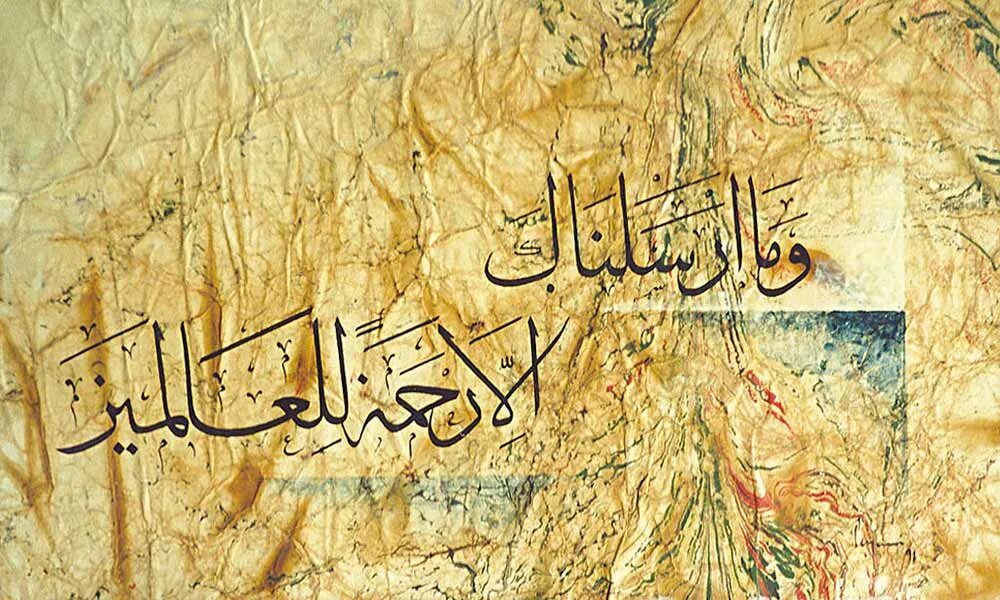 وَمَا ارَسَلنَاك
الاَّ رَحمَةً لِلعَالَمينَ